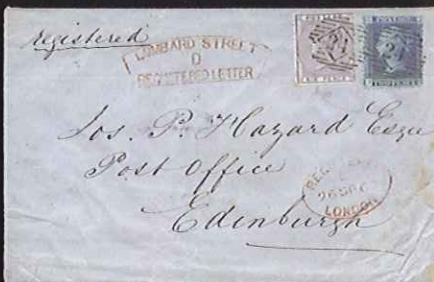 registered
LOMBARD STREET
O
REGISTERED LETTER
Jos. P. Hazard Esqre
Post Office
Edinburgh
LONDON